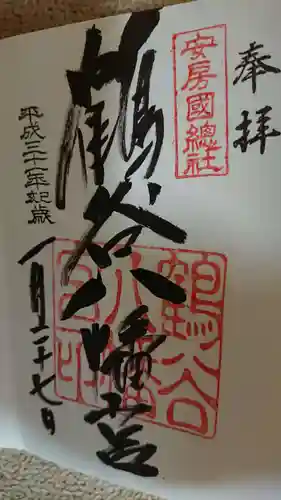 奉拝
安房國總社
鶴谷八幡宮
鶴谷八幡宮印
平成三十一年己亥歳
一月二十七日